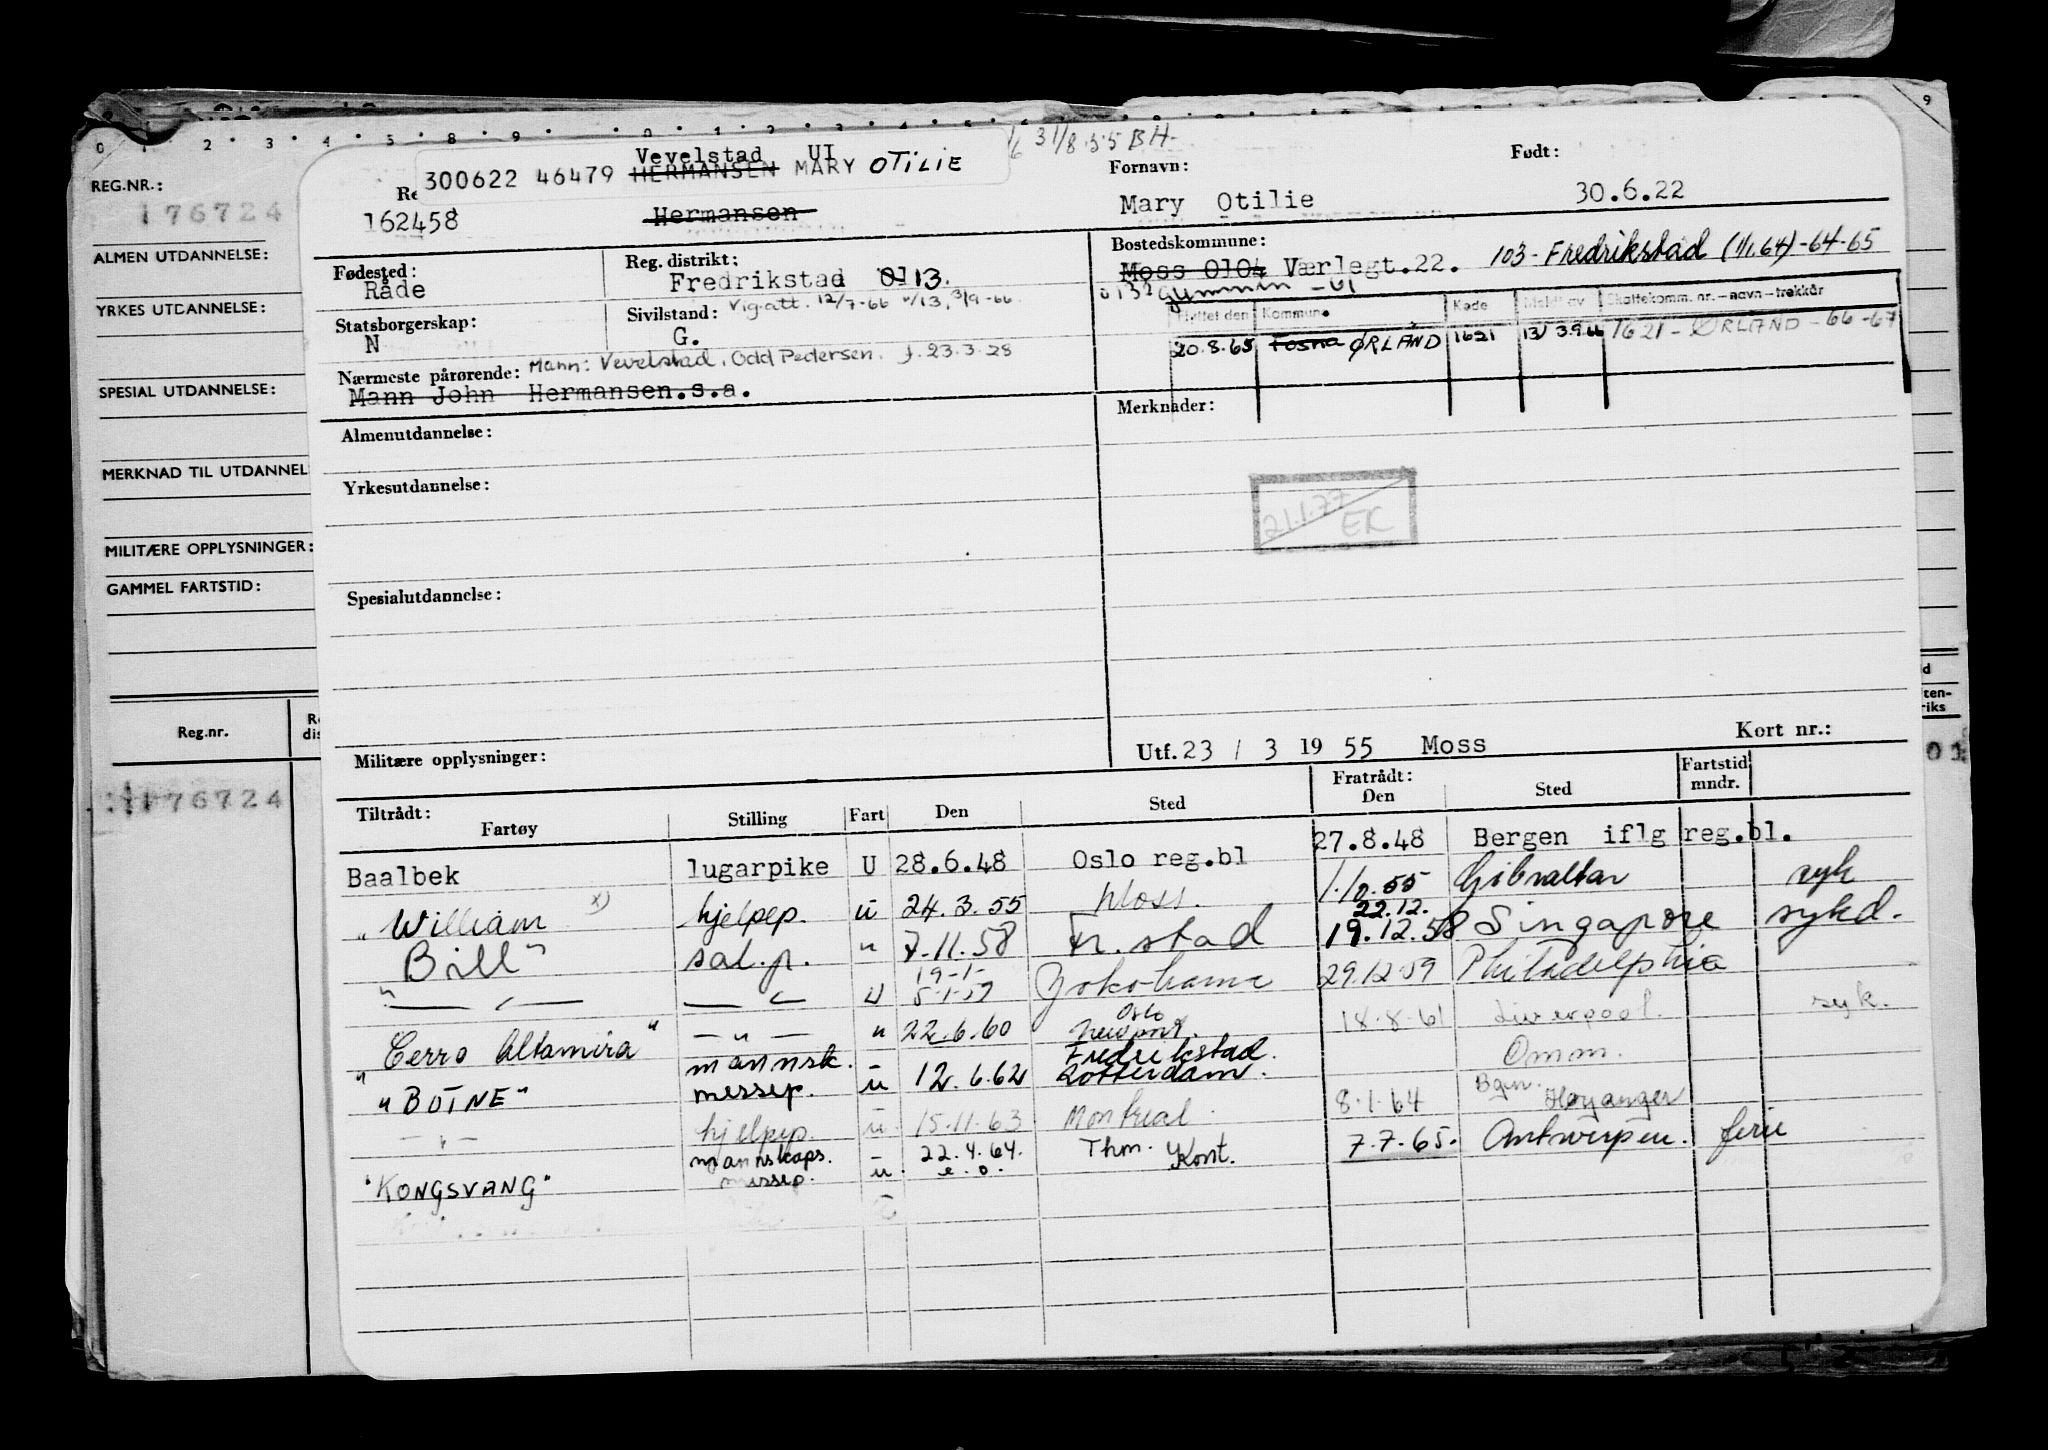 0 1 2 3 4 5 8 9 0 1 2 3 4 5 9
31/8-55 BH-
REG.NR.:
176724
ALMEN UTDANNELSE:
YRKES UTDANNELSE:
SPESIAL UTDANNELSE:
MERKNAD TIL UTDANNEL
MILITÆRE OPPLYSNINGER:
GAMMEL FARTSTID:
Reg.nr.
176724
Vevelstad UI
300622 46479 HERMANSEN MARY OTILIE
Re
162458 Hermansen
Fornavn:
Mary Otilie
Født:
30.6.22
Fødested:
Råde
Reg. distrikt:
Fredrikstad 0113.
Bostedskommune:
Moss 0104 Værlegt.22. 103-Fredrikstad (1/1.64)-64-65
0132 Glemmen -61
Statsborgerskap:
N
Sivilstand: Vig.att. 12/7-66 v/13, 3/9-66
G.
Flyttet den Kommune Kode Meldt av Skattekomm. nr.-navn-trekkår
20.8.65 Fosna ØRLAND 1621 13/3.9.66 1621-ØRLAND-66-67
Nærmeste pårørende: Mann: Vevelstad, Odd Pedersen. f. 23.3.28
Mann John Hermansen.s.a.
Almenutdannelse:
Merknader:
Yrkesutdannelse:
21.1.77
EK
Spesialutdannelse:
Militære opplysninger:
Utf. 23 / 3 19 55 Moss Kort nr.:
Tiltrådt:
Fartøy Stilling Fart Den Sted
Fratrådt:
Den Sted Fartstid mndr.
Baalbek lugarpike U 28.6.48 Oslo reg.bl 27.8.48 Bergen iflg reg.bl.
"William x) hjelpep. u 24.3.55 Moss. 1.10.55 Gibraltar syk
22.12.
"Bill" sal.p. " 7.11.58 Fr.stad 19.12.58 Singapore sykd.
19-1-
— " — — " — U 5-1-59 Yokohama 29.12.59 Philadelphia
Oslo
"Cerro Altamira" — " — " 22.6.60 Newport. 18.8.61 Liverpool. syk.
mannsk. Fredrikstad.
"BOTNE" messep. u 12.6.62 Rotterdam. Omm.
Bgn.
— " — hjelpep. u 15.11.63 Montreal 8.1.64 Høyanger
mannskaps. 22.4.64. Thm.
"KONGSVANG" messep. u. e.o. Kont. 7.7.65. Antwerpen. ferie